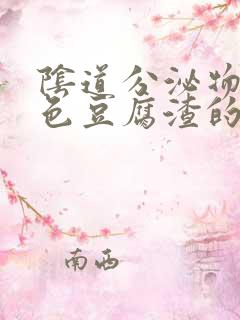 陰道分泌物
色豆腐渣的
南西